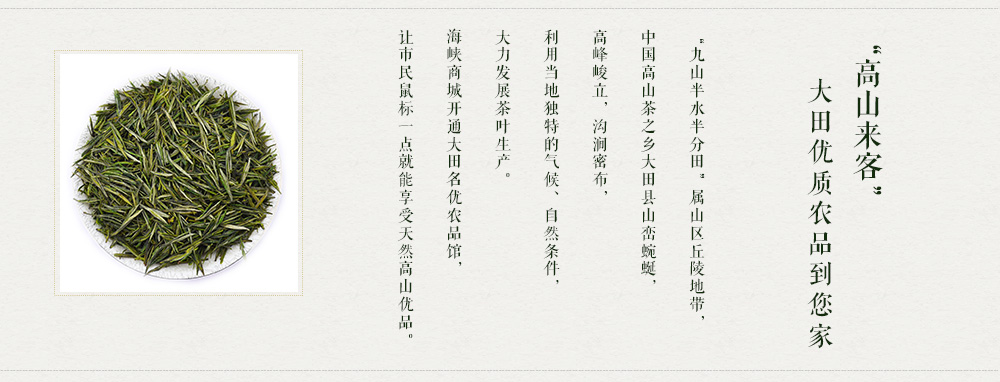 “高山来客”
大田优质农品到您家
“九山半水半分田”属山区丘陵地带，
中国高山茶之乡大田县山峦蜿蜒，
高峰峻立，沟涧密布，
利用当地独特的气候、自然条件，
大力发展茶叶生产。
海峡商城开通大田名优农品馆，
让市民鼠标一点就能享受天然高山优品。